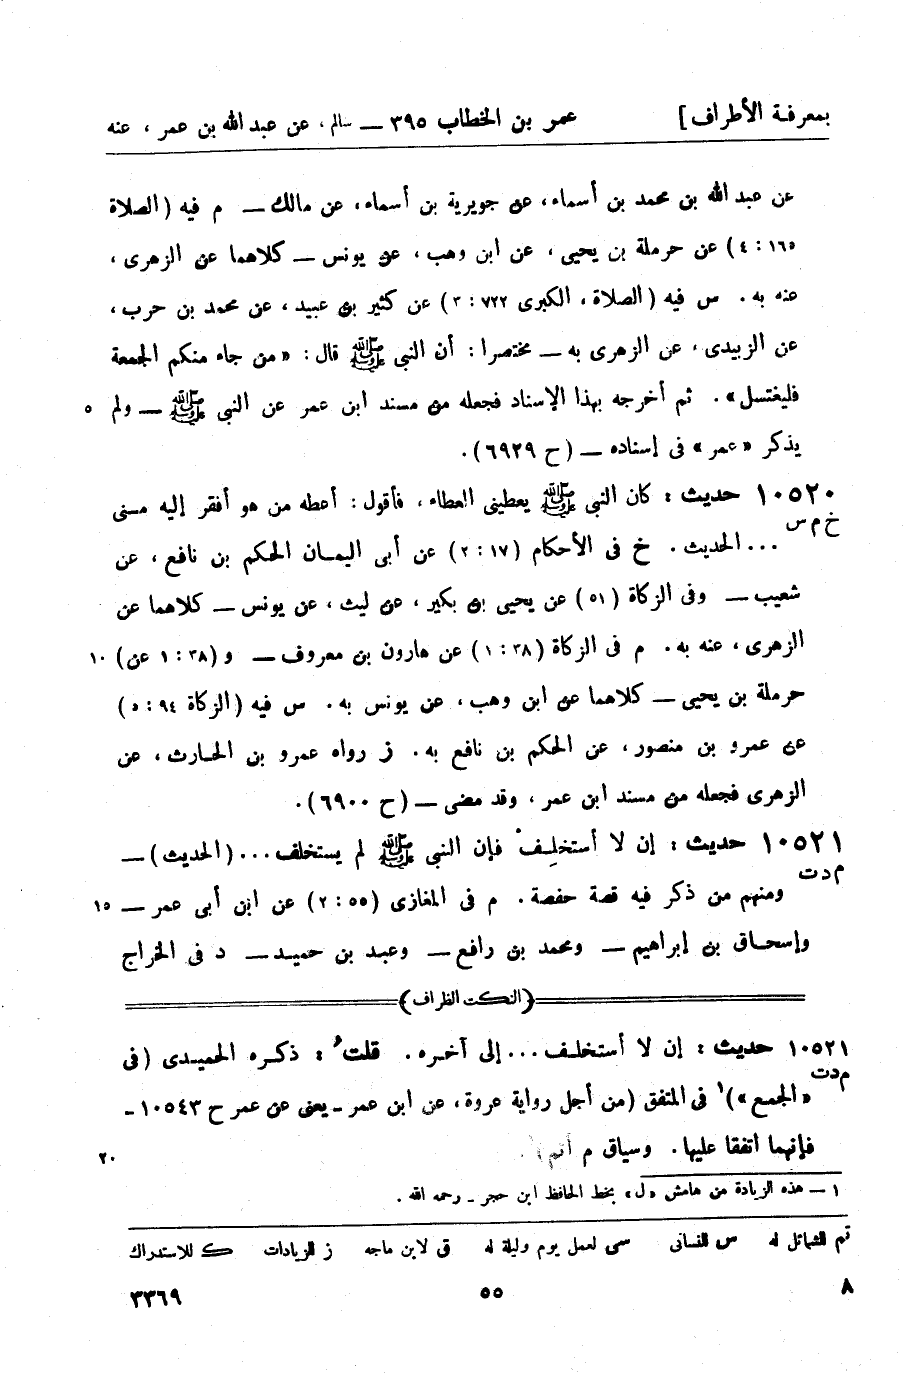 بمعرفة الأطراف] عمر بن الخطاب ٣٩٥ ــ سالم، عن عبد الله بن عمر، عنه
عن عبد الله بن محمد بن أسماء، عن جويرية بن أسماء، عن مالك ــ م فيه (الصلاة
١٦٥ : ٤) عن حرملة بن يحيى، عن ابن وهب، عن يونس ــ كلاهما عن الزهرى،
عنه به. س فيه (الصلاة، الكبرى ٧٢٢ : ٣) عن كثير بن عبيد، عن محمد بن حرب،
عن الزبيدى، عن الزهرى به ــ مختصرا: أن النبي ﷺ قال: «من جاء منكم الجمعة
فليغتسل». ثم أخرجه بهذا الإسناد فجعله من مسند ابن عمر عن النبي ﷺ ــ ولم ٥
يذكر «عمر» فى إسناده ــ (ح ٦٩٢٩).
١٠٥٢٠ حديث: كان النبي ﷺ يعطينى العطاء، فأقول: أعطه من هو أفقر إليه منى
خ م س ... الحديث. خ فى الأحكام (١٧ : ٢) عن أبى اليمان الحكم بن نافع، عن
شعيب ــ وفى الزكاة (٥١) عن يحيى بن بكير، عن ليث، عن يونس ــ كلاهما عن
الزهرى، عنه به. م فى الزكاة (٣٨ : ١) عن هارون بن معروف ــ و (٣٨ : ١ عن) ١٠
حرملة بن يحيى ــ كلاهما عن ابن وهب، عن يونس به. س فيه (الزكاة ٩٤ : ٥)
عن عمرو بن منصور، عن الحكم بن نافع به. ز رواه عمرو بن الحارث، عن
الزهرى فجعله من مسند ابن عمر، وقد مضى ــ (ح ٦٩٠٠).
١٠٥٢١ حديث: إن لا أستخلِفْ فإن النبي ﷺ لم يستخلف... (الحديث) ــ
م د ت ومنهم من ذكر فيه قصة حفصة. م فى المغازى (٥٥ : ٢) عن ابن أبى عمر ــ ١٥
وإسحاق بن إبراهيم ــ ومحمد بن رافع ــ وعبد بن حميد ــ د فى الخراج
(النكت الظراف)
١٠٥٢١ حديث: إن لا أستخلف... إلى آخره. قلتُ: ذكره الحميدى (فى
م د ت «الجمع»)١ فى المتفق (من أجل رواية عروة، عن ابن عمر ـ يعنى عن عمر ح ١٠٥٤٣ ـ
فإنهما اتفقا عليها. وسياق م أتم). ٢٠
١ ــ هذه الزيادة من هامش «ل» بخط الحافظ ابن حجر ـ رحمه الله.
تم للشمائل له س للنسائى سى لعمل يوم وليلة له ق لابن ماجه ز للزيادات ك للاستدراك
٨ ٥٥ ٣٣٦٩